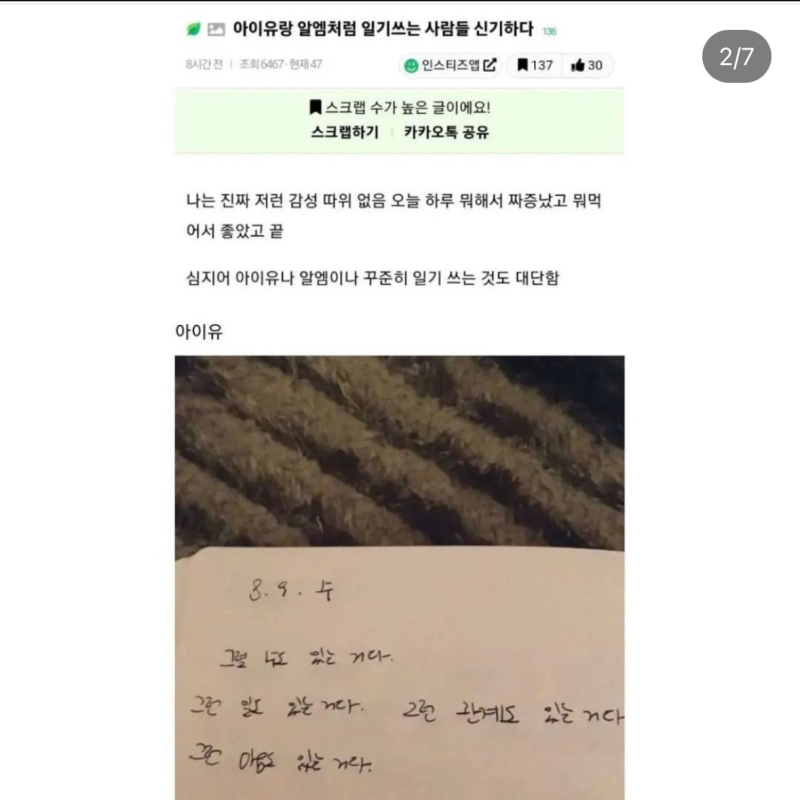 아이유랑 알엠처럼 일기쓰는 사람들 신기하다 136
2/7
8시간 전 | 조회 6467 · 현재 47
인스티즈앱
137
30
스크랩 수가 높은 글이에요!
스크랩하기 | 카카오톡 공유
나는 진짜 저런 감성 따위 없음 오늘 하루 뭐해서 짜증났고 뭐먹
어서 좋았고 끝
심지어 아이유나 알엠이나 꾸준히 일기 쓰는 것도 대단함
아이유
8. 9. 수
그럴 수도 있는 거다.
그런 일도 있는 거다. 그런 관계도 있는 거다
그런 마음도 있는 거다.